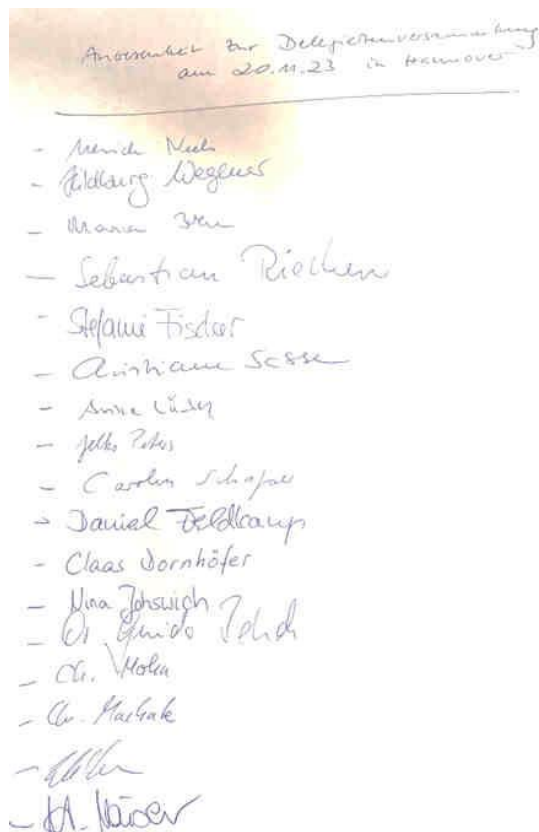 Anwesenheit zur Delegiertenversammlung
am 20.11.23 in Hannover
- Niels
- Hildburg Wegener
- Maria
- Sebastian Riechen
- Stefanie Fischer
- Christiane Sasse
- Anne Lüders
- Jelko Peters
- Carolin Schäfer
- Daniel Feldkamp
- Claas Dornhöfer
- Nina Johswich
- Dr. Guido
- Ch.
- Chr. Machate
-
-